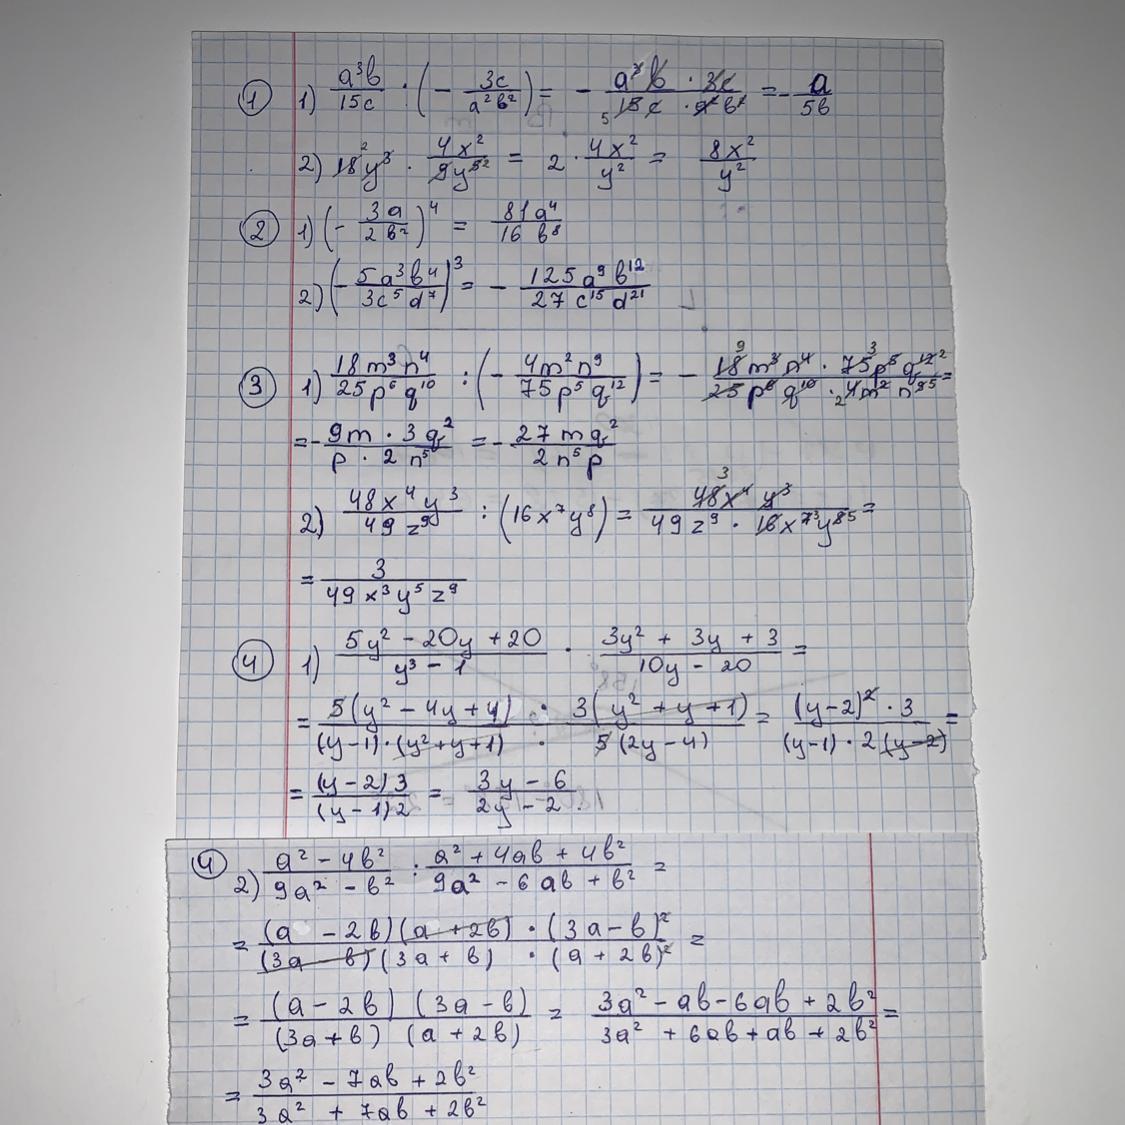 ① 1) a³b/15c · (− 3c/a²b²) = − a³b · 3c / 15c · a²b² 5 = − a/5b
2) 18² y³ · 4x²/9y⁵² = 2 · 4x²/y² = 8x²/y²
② 1) (− 3a/2b²)⁴ = 81a⁴/16 b⁸
2) (− 5a³b⁴/3c⁵d⁷)³ = − 125a⁹b¹²/27c¹⁵d²¹
③ 1) 18m³n⁴/25p⁶q¹⁰ : (− 4m²n⁹/75p⁵q¹²) = − 18⁹m³n⁴ · 75³p⁵q¹²² / 25p⁶q¹⁰ · ₂4m²n⁹⁵ =
= − 9m · 3q²/p · 2n⁵ = − 27mq²/2n⁵p
2) 48x⁴y³/49z⁹ : (16x⁷y⁸) = 48³x⁴y³/49z⁹ · 16x⁷³y⁸⁵ =
= 3/49x³y⁵z⁹
④ 1) 5y² − 20y + 20/y³ − 1 · 3y² + 3y + 3/10y − 20 =
= 5(y² − 4y + 4) · 3(y² + y + 1)/(y−1)·(y²+y+1) · 5(2y−4) = (y−2)² · 3/(y−1) · 2(y−2) =
= (y−2)3/(y−1)2 = 3y − 6/2y − 2.
④ 2) a² − 4b²/9a² − b² : a² + 4ab + 4b²/9a² − 6ab + b² =
= (a − 2b)(a + 2b) · (3a − b)²/(3a − b)(3a + b) · (a + 2b)² =
= (a − 2b) (3a − b)/(3a + b) (a + 2b) = 3a² − ab − 6ab + 2b²/3a² + 6ab + ab + 2b² =
= 3a² − 7ab + 2b²/3a² + 7ab + 2b²